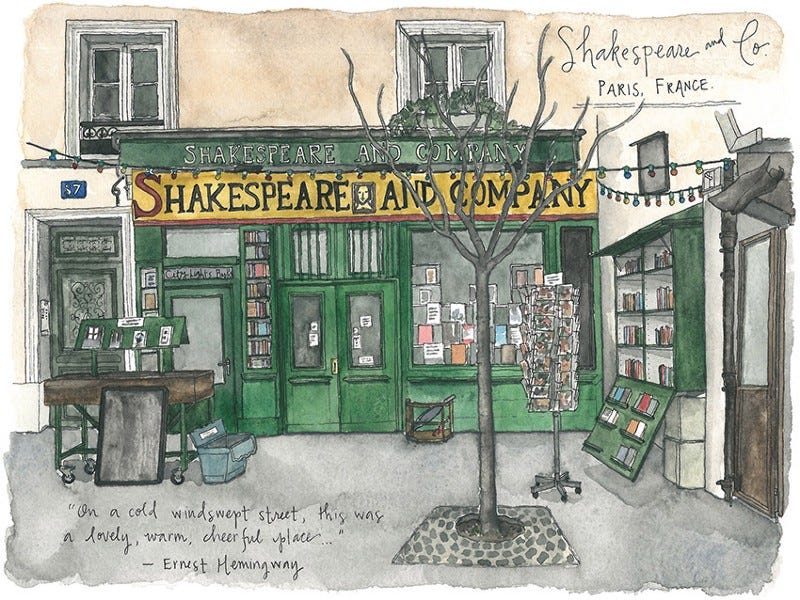 Shakespeare and Co.
PARIS, FRANCE.
SHAKESPEARE AND COMPANY
SHAKESPEARE AND COMPANY
37
City Lights Books
"On a cold windswept street, this was
a lovely, warm, cheerful place..."
— ERNEST HEMINGWAY